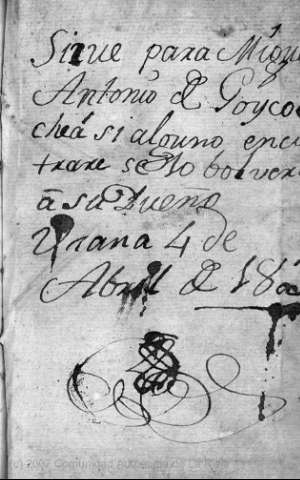 Sirue para Migu
Antonio de Goyco
chea si alguno encu
trare se lo bolver
â su Dueño
Urana 4 de
Abril de 180